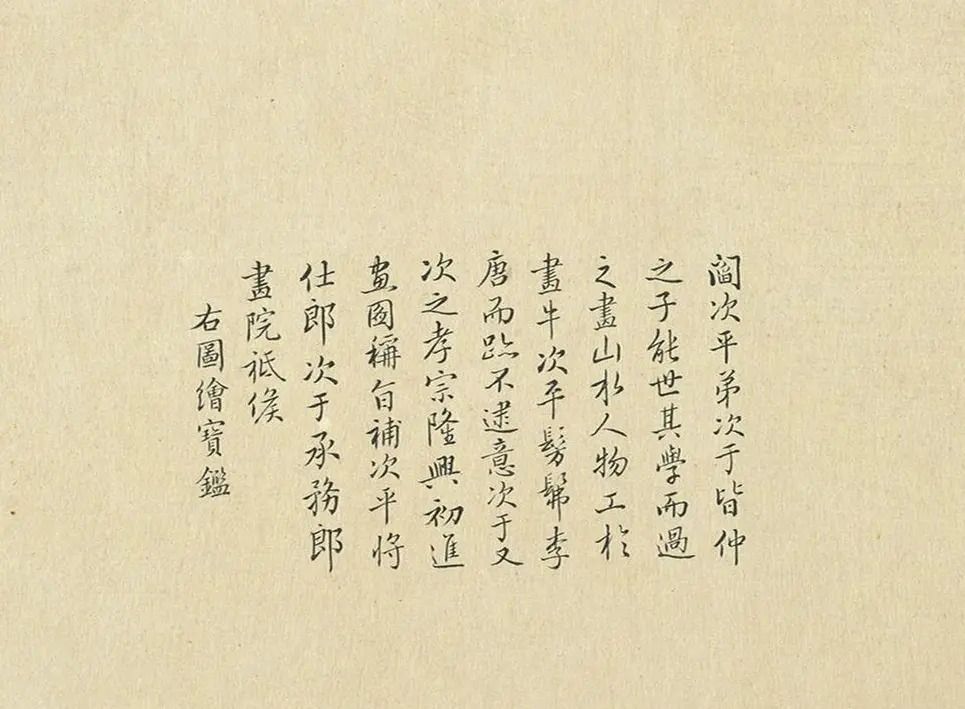 閻次平弟次于皆仲
之子能世其學而過
之畫山水人物工於
畫牛次平髣髴李
唐而跡不逮意次于又
次之孝宗隆興初進
畫圖稱旨補次平將
仕郎次于承務郎
畫院祗候
右圖繪寶鑑